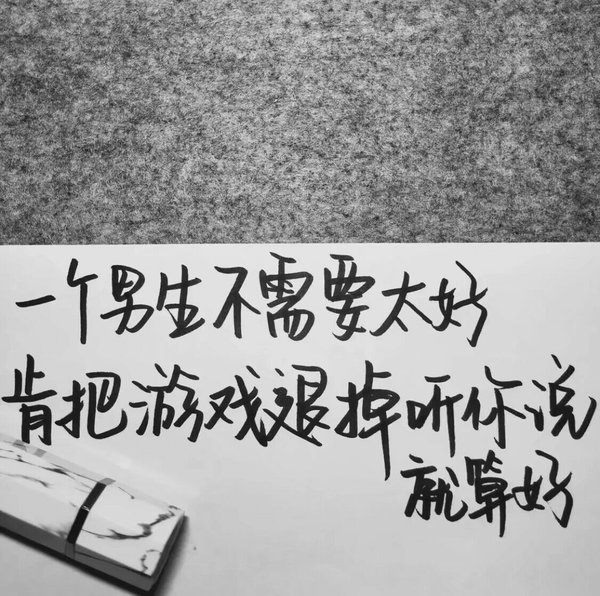 一个男生不需要太好
肯把游戏退掉听你说
就算好